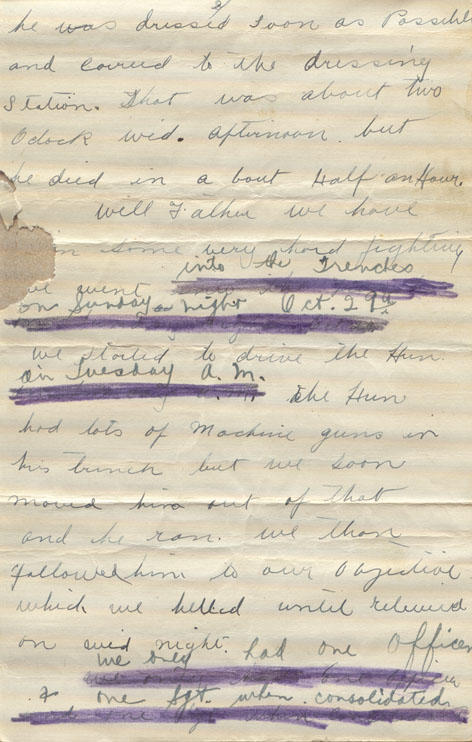 2/
he was dressed soon as Possible
and covered to the dressing
Station. That was about two
Oclock wed. afternoon but
he died in a bout Half an Hour.
Well Father we have
in some very hard fighting
we went into the Trenches
on Sunday night Oct. 29
we started to drive the Hun
on Tuesday A.M. the Hun
had lots of Machine guns in
his trench but we soon
moved him out of that
and he ran. we than
followed him to our Objective
which we helled until relieved
on wed night. had one Officer
we only
& one Sgt. when consolidated